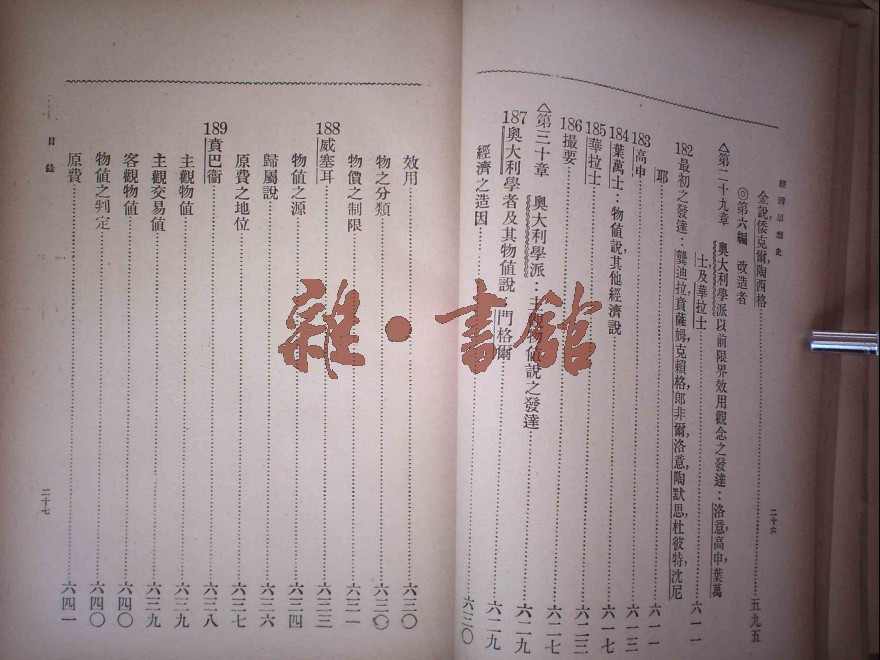 經濟思想史
金說，倭克爾，陶西格……五九五
◎第六編　改造者
△第二十九章　奧大利學派以前限界效用觀念之發達：洛意，高申，葉萬
士，及華拉士……六一一
182最初之發達：龔迪拉，賁薩姆，克賴格，郎非爾，洛意，陶默思，杜彼特，沈尼
耶……六一一
183高申……六一三
184葉萬士：物值說，其他經濟說……六一七
185華拉士……六二三
186撮要……六二七
△第三十章　奧大利學派：主觀物值說之發達……六二九
187奧大利學者及其物值說　門格爾……六二九
經濟之造因……六三〇
二十六
效用……六三〇
物之分類……六三〇
物價之制限……六三一
188威塞耳……六三三
物值之源……六三四
歸屬說……六三六
原費之地位……六三七
189賁巴衞……六三八
主觀物值……六三九
主觀交易值……六三九
客觀物值……六四〇
物值之判定……六四〇
原費……六四一
目錄
二十七
雜·書館